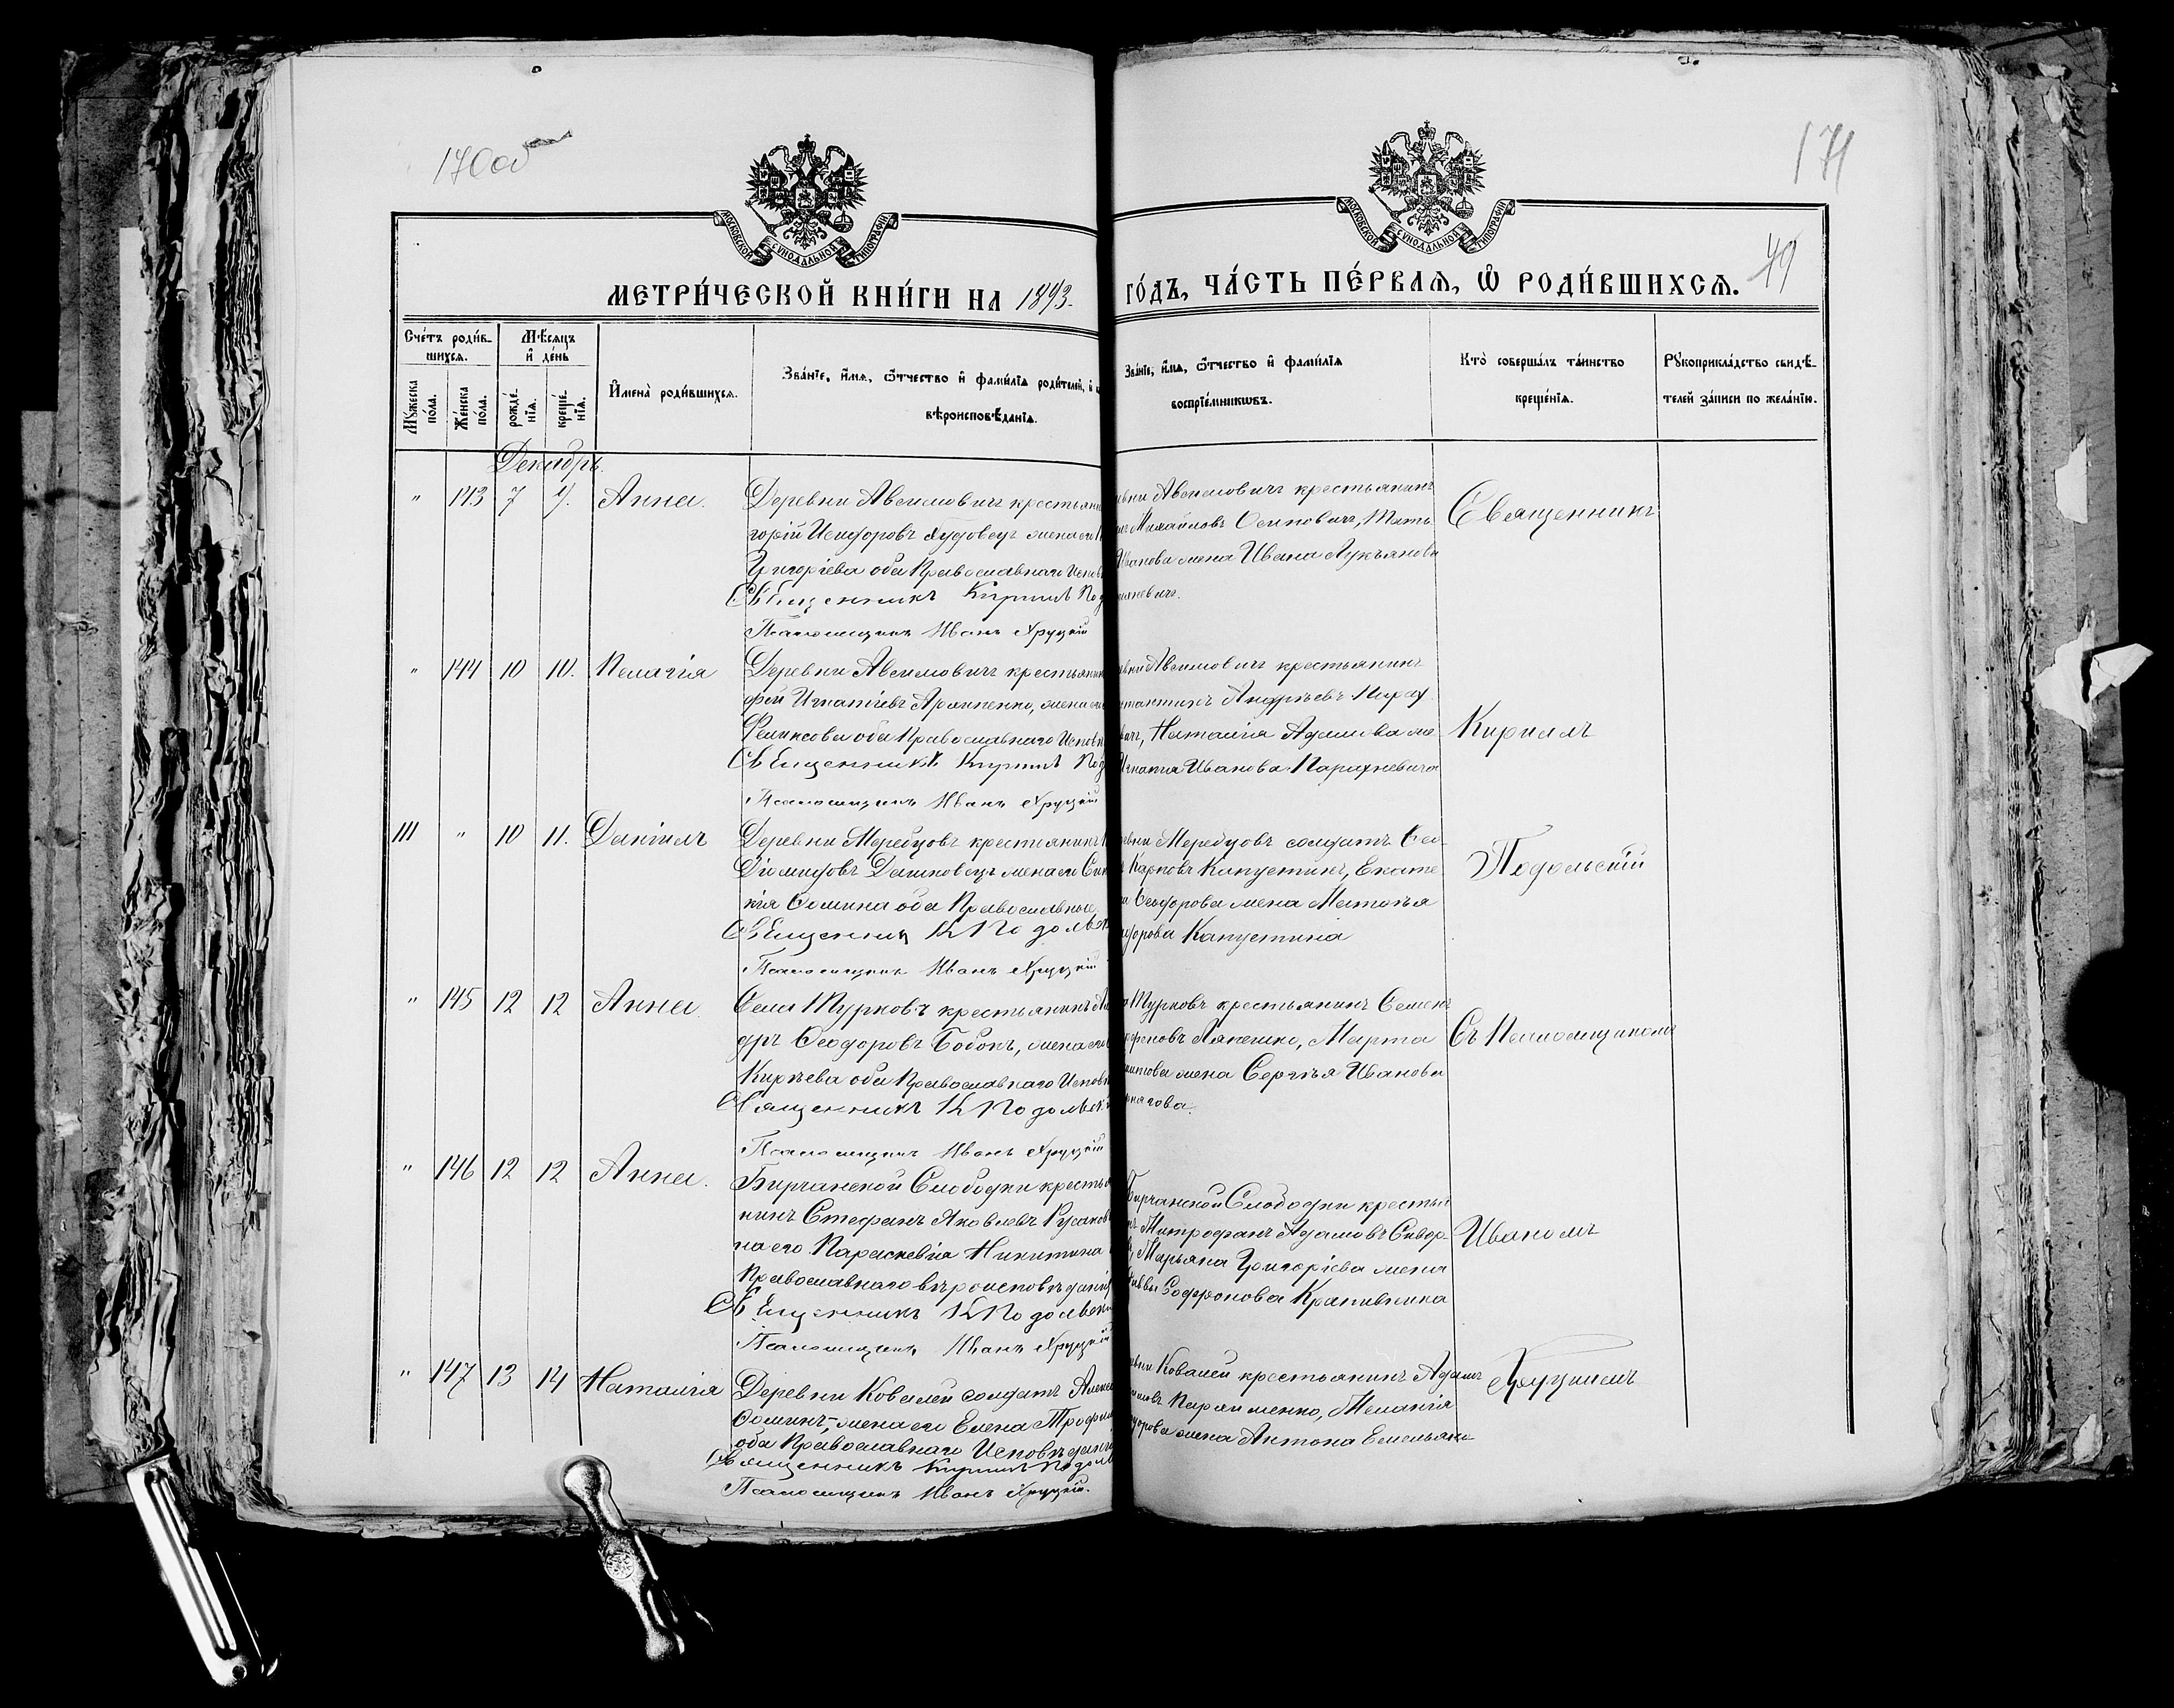 170 об
171
МОСКОВСКОЙ СУНОДАЛЬНОЙ ТИПОГРАФІИ
МОСКОВСКОЙ СУНОДАЛЬНОЙ ТИПОГРАФІИ
МЕТРИ́ЧЕСКОЙ КНИ́ГИ НА 1893.
ГО́ДЪ, ЧА́СТЬ ПЕ́РВАѦ, Ѡ҆ РОДИ́ВШИХСѦ.
Сче́тъ роди́в-
шихсѧ.
Мꙋжеска по́ла.
Же́нска по́ла.
Мѣ́сѧцъ
и҆ де́нь
рожде́-нїѧ.
креще́-нїѧ.
И҆мена̀ роди́вшихсѧ.
Зва́нїе, и҆́мѧ, ѻ҆́тчество и҆ фами́лїѧ роди́телей, и҆
вѣроисповѣ́данїѧ.
Зва́нїе, и҆́мѧ, ѻ҆́тчество и҆ фами́лїѧ
воспрїе́мникѡвъ.
Кто̀ соверша́лъ та́инство
креще́нїѧ.
Рꙋкоприкла́дство свидѣ́-
телей за́писи по жела́нїю.
Декабрь.
" 143 7 9. Анна.
Деревни Авсимовичъ крестьяни
горій Исидоровъ Худовецъ жена его
Григоріева оба Православнаго Испов
Священникъ Кириллъ Под
Псаломщикъ Иванъ Хруцкій
евни Авсимовичъ крестьянинъ
Михайловъ Осиповичъ, Мать
Иванова жена Ивана Лукьянова
Священникъ
" 144 10 10. Пелагія
Деревни Авсимовичъ крестьянин
фей Игнатіевъ Архипенко, жена его
Феликсова оба Православнаго Испов
Священникъ Кириллъ Под
Псаломщикъ Иванъ Хруцкій
евни Авсимовичъ крестьянинъ
стантинъ Андреевъ Парах
вичъ, Наталія Адамова же
Игнатія Иванова Парахневича
Кириллъ
111 " 10 11. Даніилъ
Деревни Моребцовъ крестьянинъ
Діомидовъ Дашковецъ жена его
кія Фомина оба Православные
Священник К Подольск
Псаломщикъ Иванъ Хруцкій
евни Меребцовъ солдатъ Ѳео-
Карповъ Капустинъ, Екате
а Ѳеодорова жена Матвѣя
дорова Капустина
Подольскій
" 145 12 12 Анна.
Села Турковъ крестьянинъ
дръ Ѳеодоровъ Бобокъ, жена его
Кирѣева оба Православнаго Испов
Священникъ К Подольск
Псаломщикъ Иванъ Хруцкій
Турковъ крестьянинъ Семенъ
Ляпешко, Марта
жена Сергѣя Иванова
Съ Псаломщикомъ
" 146 12 12 Анна.
Бирчанской Слободки крестья
нинъ Стефанъ Яковлевъ Русаков
на его Параскевіа Никитина
Православнаго вѣроисповѣданія
Священникъ К Подольскій
Псаломщикъ Иванъ Хруцкій
Бирчанской Слободки крестья
Митрофанъ Адамовъ Сивор
Марьяна Григоріева жена
Софронова Крапивника
Иваномъ
" 147 13 14 Наталія
Деревни Ковалей солдатъ Алекс
Фоминъ, жена его Елена Трофим
оба Православнаго Исповѣданія
Священникъ Кириллъ Подоль
Псаломщикъ Иванъ Хруцкій.
евни Ковалей крестьянинъ Адамъ
Пархименко, Меланія
дорова жена Антона Емельяно
Хруцкимъ